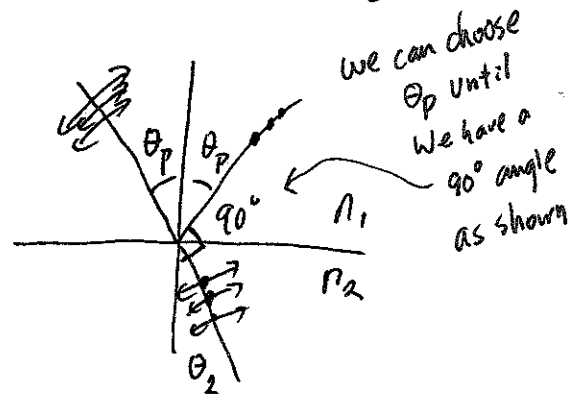 we can choose
θp until
We have a
90° angle
as shown
θp θp
90°
n1
n2
θ2